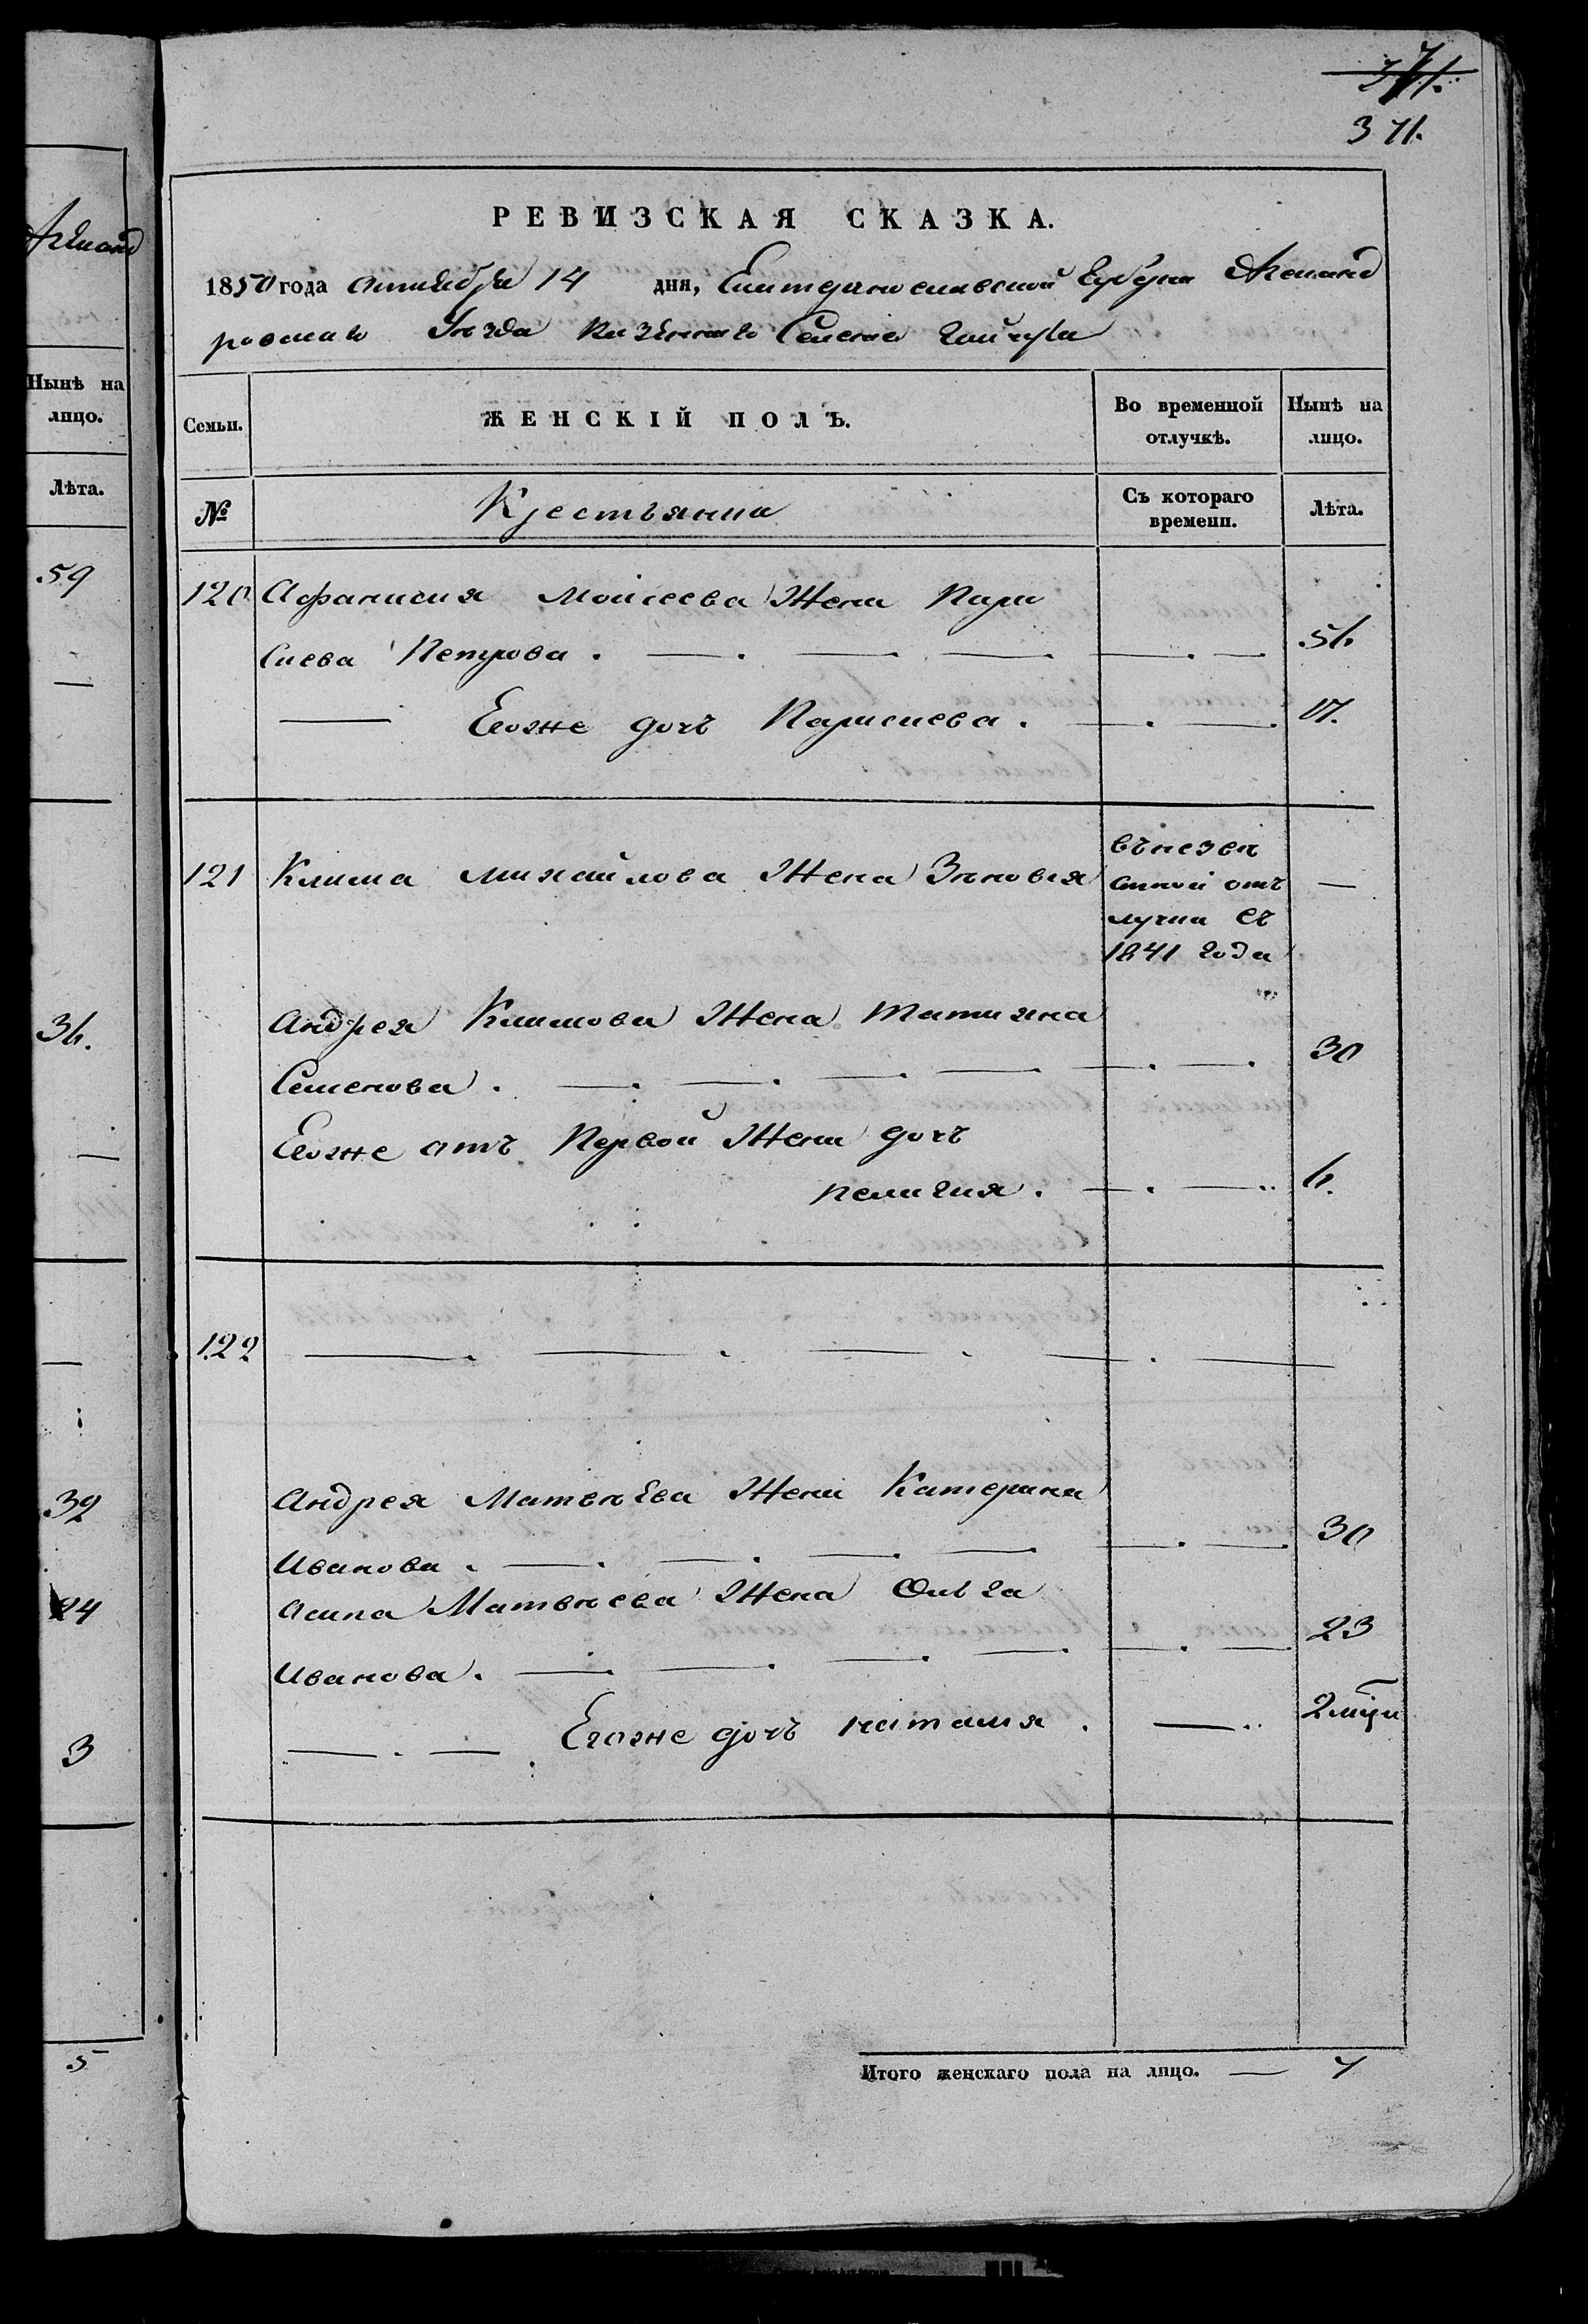 371.
371.
Александ
РЕВИЗСКАЯ СКАЗКА.
1850 года октября 14 дня, Екатеринославской Губерни Александ
ровскаго Уѣзда казеннаго Селения Гайчура
Нынѣ на
лицо.
Лѣта.
Семьи.
ЖЕНСКІЙ ПОЛЪ.
Во временной
отлучкѣ.
Нынѣ на
лицо.
№
Крестьянина
Съ котораго
времени.
Лѣта.
59
—
36.
—
—
32
24
3
5
120 Афанасия Моисеева Жена Пара
скева Петрова. — 56.
— Егоже дочь Параскева. — 17.
121 Клима михайлова Жена Зѣновия
въ незвѣ
стной отъ
лучки съ
1841 года
—
Андрея Климова Жена татияна
Семенова. — 30
Егоже отъ Первой Жены дочь
пелагия. — 6.
122 —
Андрея Матвѣева Жена Катерина
Иванова. — 30
осипа Матвѣева Жена Ольга
Иванова. — 23
— Егоже дочь наталия. —
Итого женскаго пола на лицо. — 7